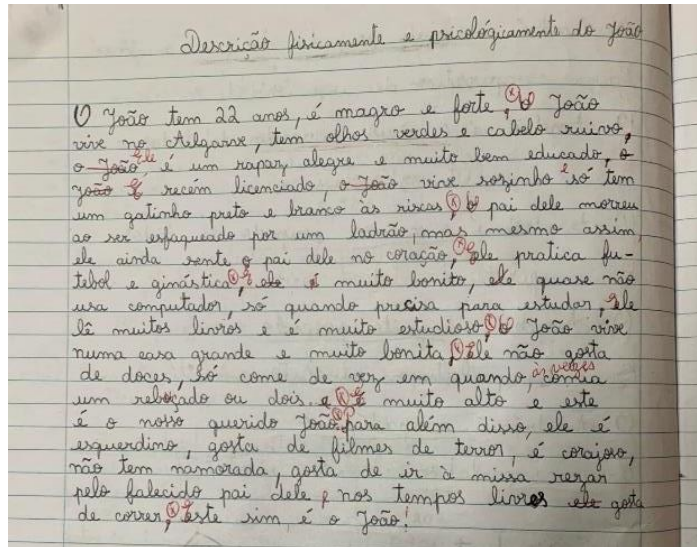 Descrição fisicamente e psicológicamente do João
O João tem 22 anos, é magro e forte, O João
vive no Algarve, tem olhos verdes e cabelo ruivo,
o João, ele é um rapaz alegre e muito bem educado, o
João é recem licenciado, o João vive sozinho e só tem
um gatinho preto e branco às riscas, O pai dele morreu
ao ser esfaqueado por um ladrão, mas mesmo assim
ele ainda sente o pai dele no coração, Ele pratica fu-
tebol e ginástica, É ele é muito bonito, ele quase não
usa computador, só quando precisa para estudar, ele
lê muitos livros e é muito estudioso, O João vive
numa casa grande e muito bonita, Ele não gosta
de doces, só come de vez em quando, às vezes comia
um rebuçado ou dois, e É muito alto e este
é o nosso querido João, para além disso, ele é
esquerdino, gosta de filmes de terror, é corajoso,
não tem namorada, gosta de ir à missa rezar
pelo falecido pai dele, nos tempos livres ele gosta
de correr, Este sim, é o João!